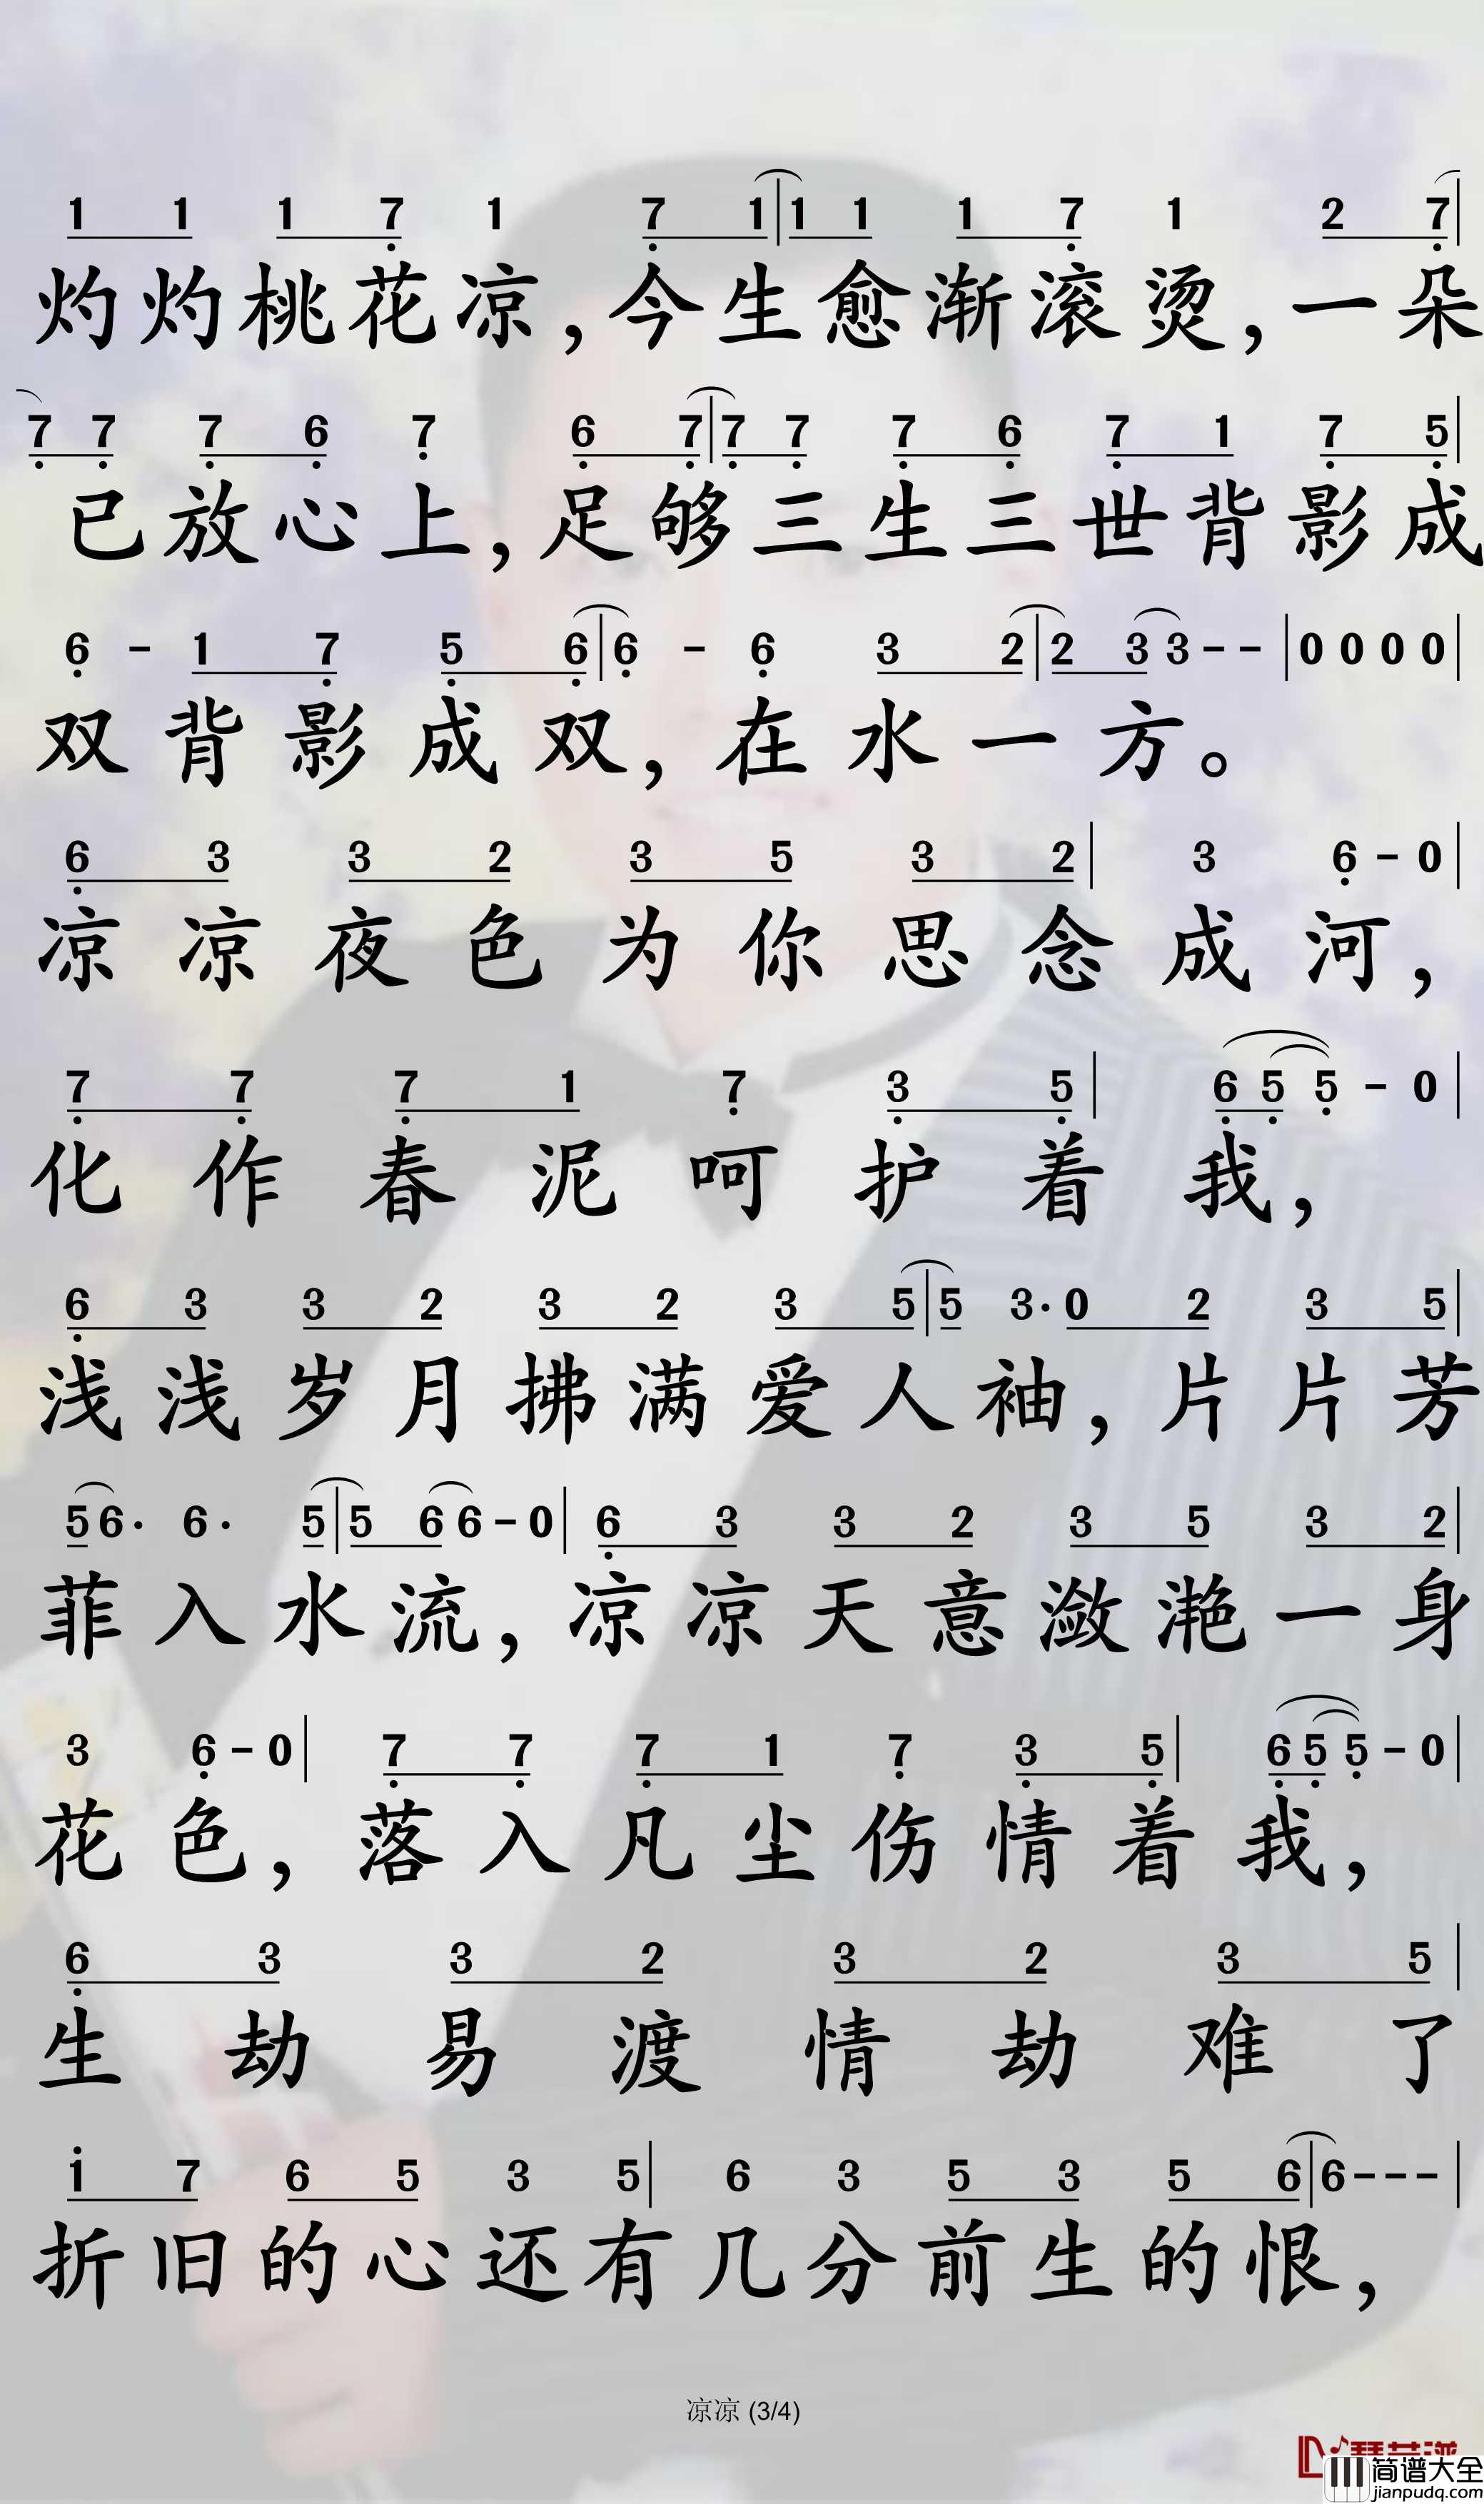 1 1 1 7 1 7 1|1 1 1 7 1 2 7|
灼灼桃花凉,今生愈渐滚烫,一朵
7 7 7 6 7 6 7|7 7 7 6 7 1 7 5|
已放心上,足够三生三世背影成
6 - 1 7 5 6|6 - 6 3 2|2 3 3 - - |0 0 0 0|
双背影成双,在水一方。
6 3 3 2 3 5 3 2| 3 6 - 0|
凉凉夜色为你思念成河,
7 7 7 1 7 3 5| 6 5 5 - 0|
化作春泥呵护着我,
6 3 3 2 3 2 3 5|5 3· 0 2 3 5|
浅浅岁月拂满爱人袖,片片芳
5 6· 6· 5|5 6 6 - 0| 6 3 3 2 3 5 3 2|
菲入水流,凉凉天意潋滟一身
3 6 - 0| 7 7 7 1 7 3 5| 6 5 5 - 0|
花色,落入凡尘伤情着我,
6 3 3 2 3 2 3 5|
生劫易渡情劫难了
1 7 6 5 3 5| 6 3 5 3 5 6|6 - - - |
折旧的心还有几分前生的恨,
凉凉 (3/4)
简谱大全
jianpudq.com